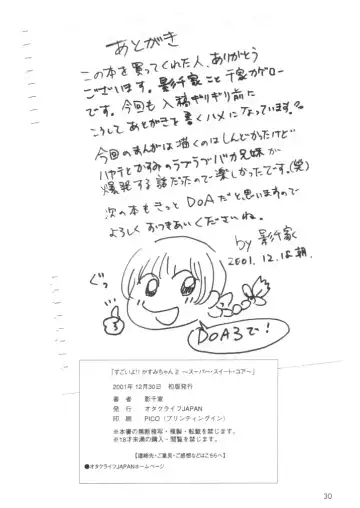 あとがき
この本を買ってくれた人、ありがとう
ございます。影千家こと千家カゲロー
です。今回も入稿ギリギリ前に
こうしてあとがきを書くハメになっています。
今回のまんがは描くのはしんどかったけど
ハヤテとかすみのラブラブバカ兄妹が
爆眠する話だったので楽しかったです。(笑)
次の本もきっとDOAだと思いますので
よろしくおつきあいくださいね。
by 影千家
2001.12.18朝.
ぐっ
DOA3で!
「すごいよ!! かすみちゃん 2 ～スーパー・スイート・コア～」
2001年12月30日 初版発行
著 者 影千家
発 行 オタクライフJAPAN
印 刷 PICO (プリンティングイン)
※本書の無断複写・複製・転載を禁じます。
※18才未満の購入・閲覧を禁じます。
【連絡先・ご意見・ご感想などはこちらへ】
●オタクライフJAPANホームページ
30